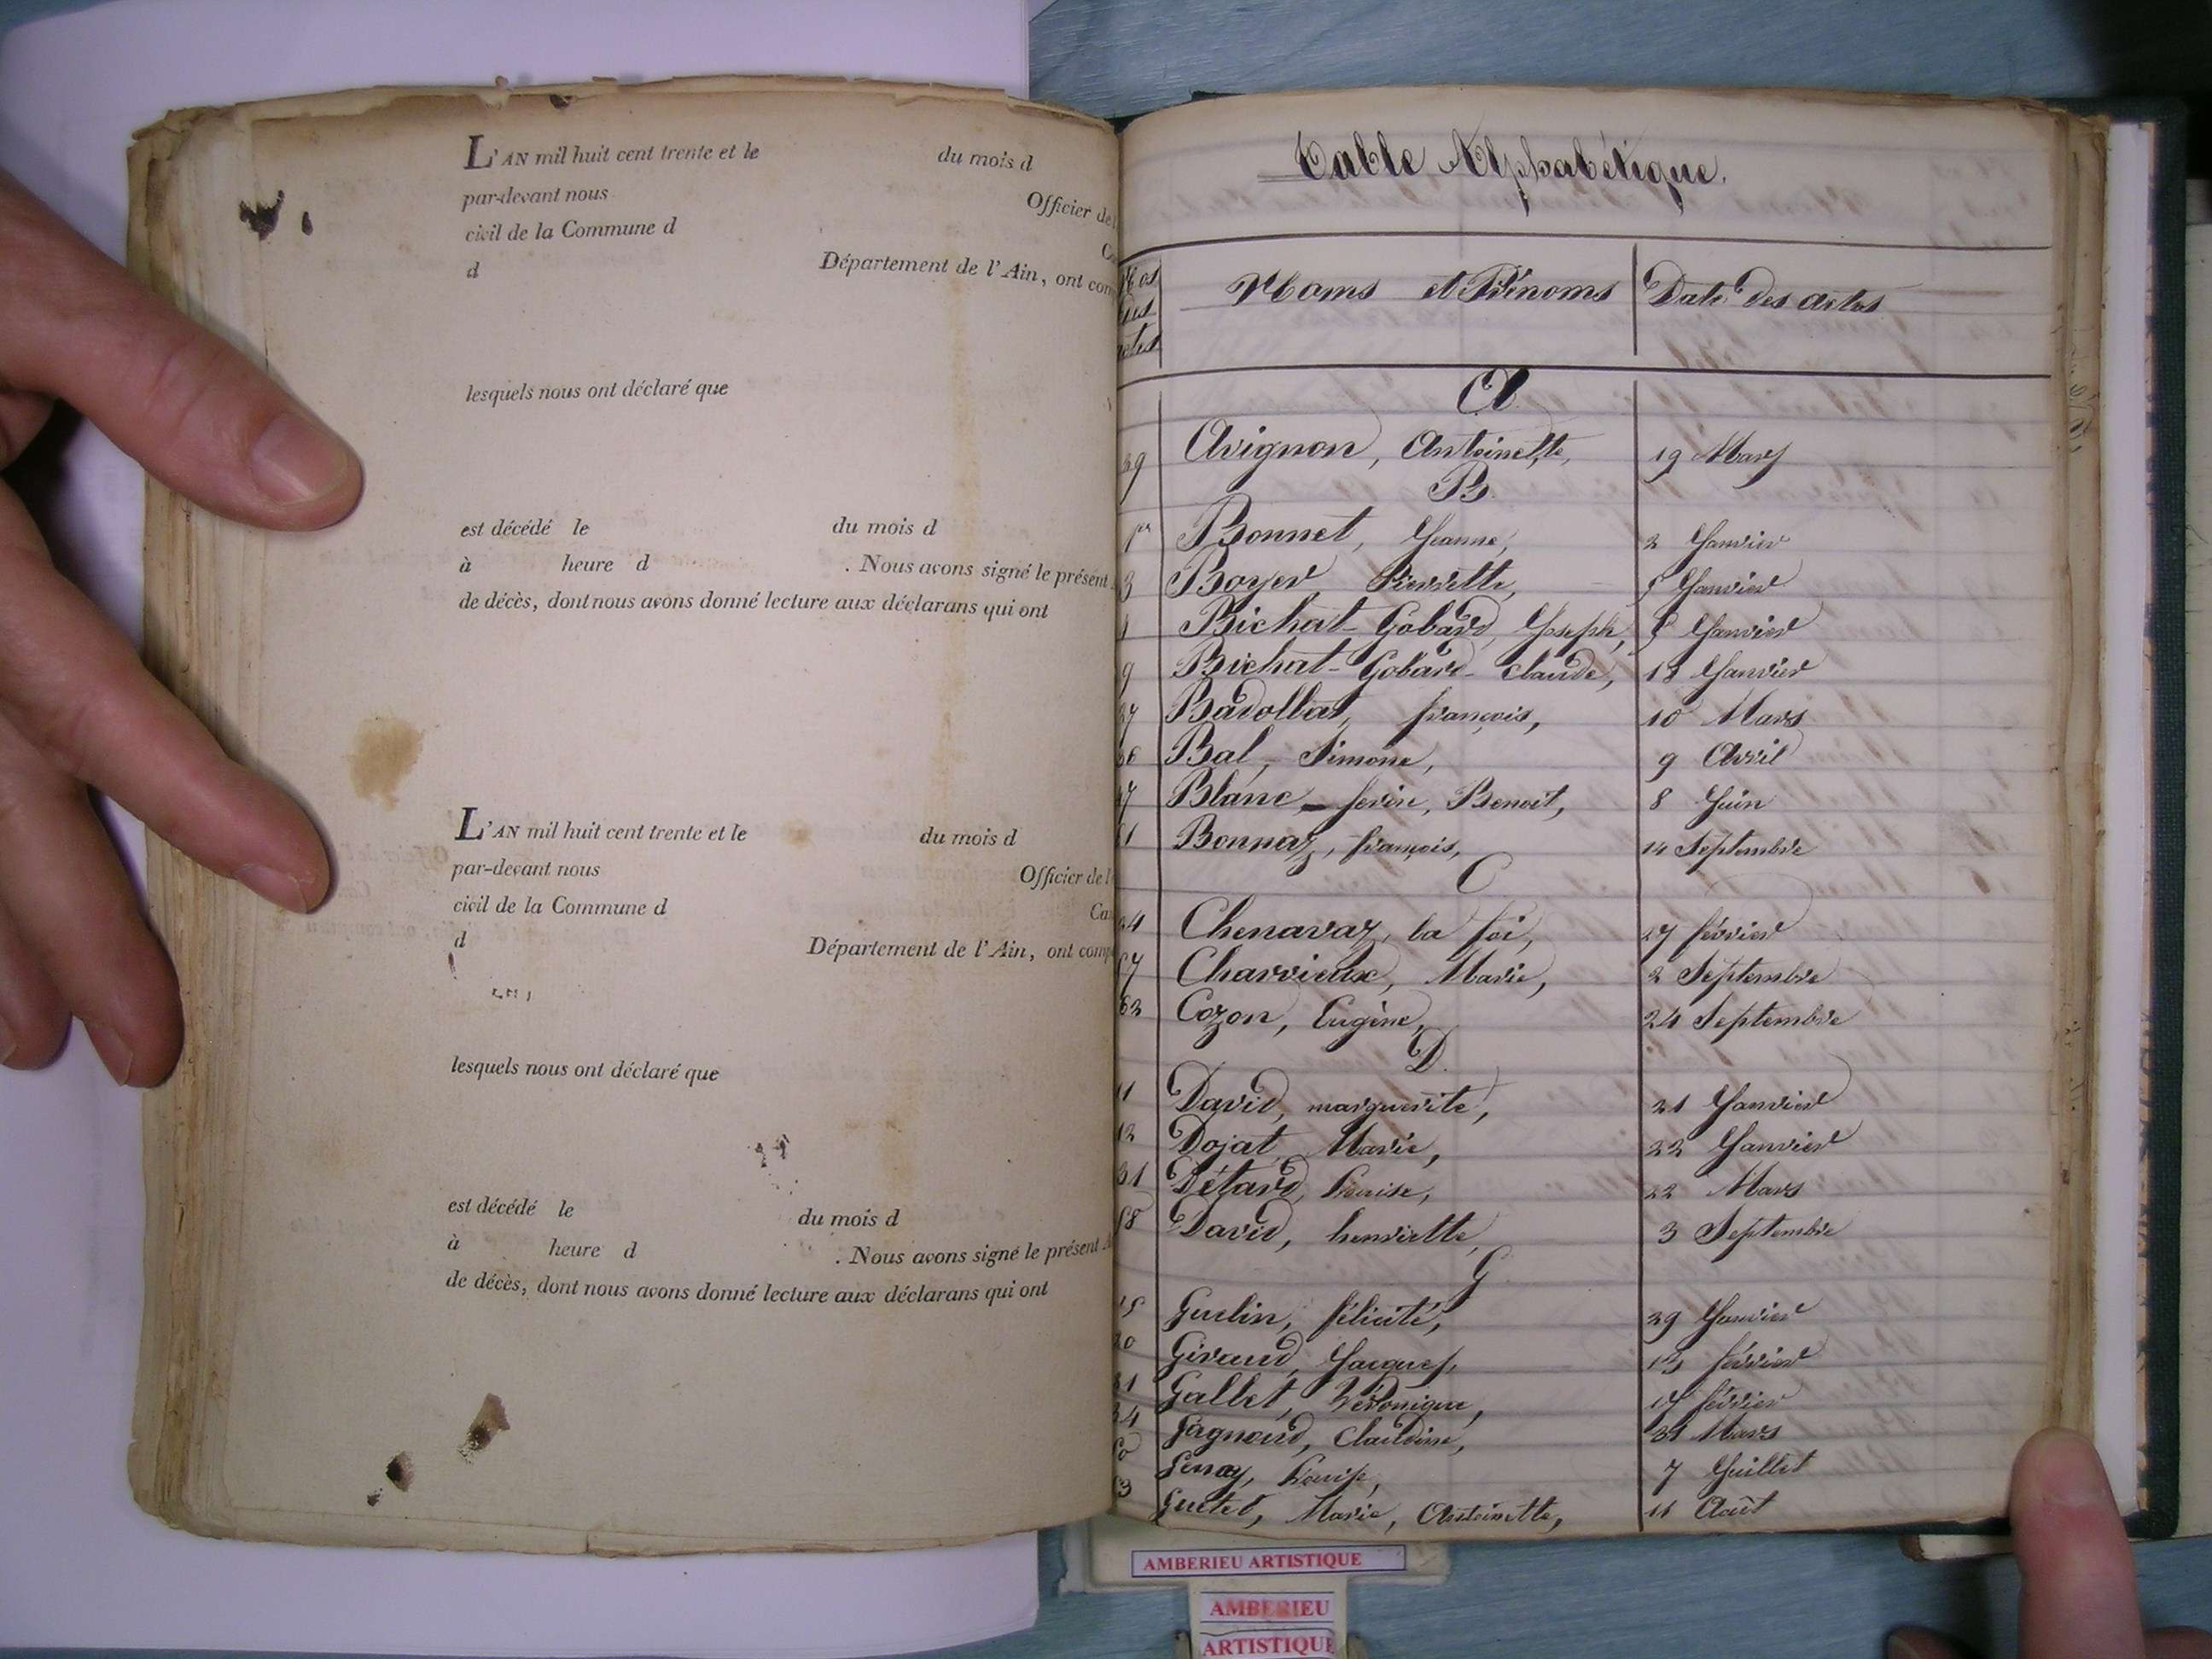 L'AN mil huit cent trente et le du mois d
par-devant nous Officier de l
civil de la Commune d
d Département de l'Ain, ont com
lesquels nous ont déclaré que
est décédé le du mois d
à heure d . Nous avons signé le présent
de décès, dont nous avons donné lecture aux déclarans qui ont
L'AN mil huit cent trente et le du mois d
par-devant nous Officier de l
civil de la Commune d Ca
d Département de l'Ain, ont comp
lesquels nous ont déclaré que
est décédé le du mois d
à heure d . Nous avons signé le présent
de décès, dont nous avons donné lecture aux déclarans qui ont
Table Alphabétique.
Nos des actes Noms et Prénoms Date des actes
A
29 Avignon, Antoinette, 19 Mars
B.
1er Bonnet, Jeanne, 2 Janvier
3 Boyer Pierrette, 5 Janvier
Bichat-Gobard, Joseph, 5 Janvier
9 Bichat-Gobard-Claude, 18 Janvier
27 Badollat, françois, 10 Mars
36 Bal, Simone, 9 Avril
47 Blanc, Benoit, 8 Juin
61 Bonnaz, françois, 14 Septembre
C
24 Chenavaz, la foi, 27 février
57 Charvieux, Marie, 2 Septembre
63 Cozon, Eugène, 24 Septembre
D.
11 David, marguerite, 21 Janvier
12 Dojat, Marie, 22 Janvier
31 Détard, Louise, 22 Mars
58 David, henriette, 3 Septembre
G
15 Guelin, félicité, 29 Janvier
20 Giraud, Jacques, 13 février
21 Gallet, Véronique, 17 février
34 Gagnoud, Claudine, 31 Mars
50 Genoy, Louise, 7 Juillet
53 Guetet, Marie, Antoinette, 11 Août
AMBERIEU ARTISTIQUE
AMBERIEU
ARTISTIQUE